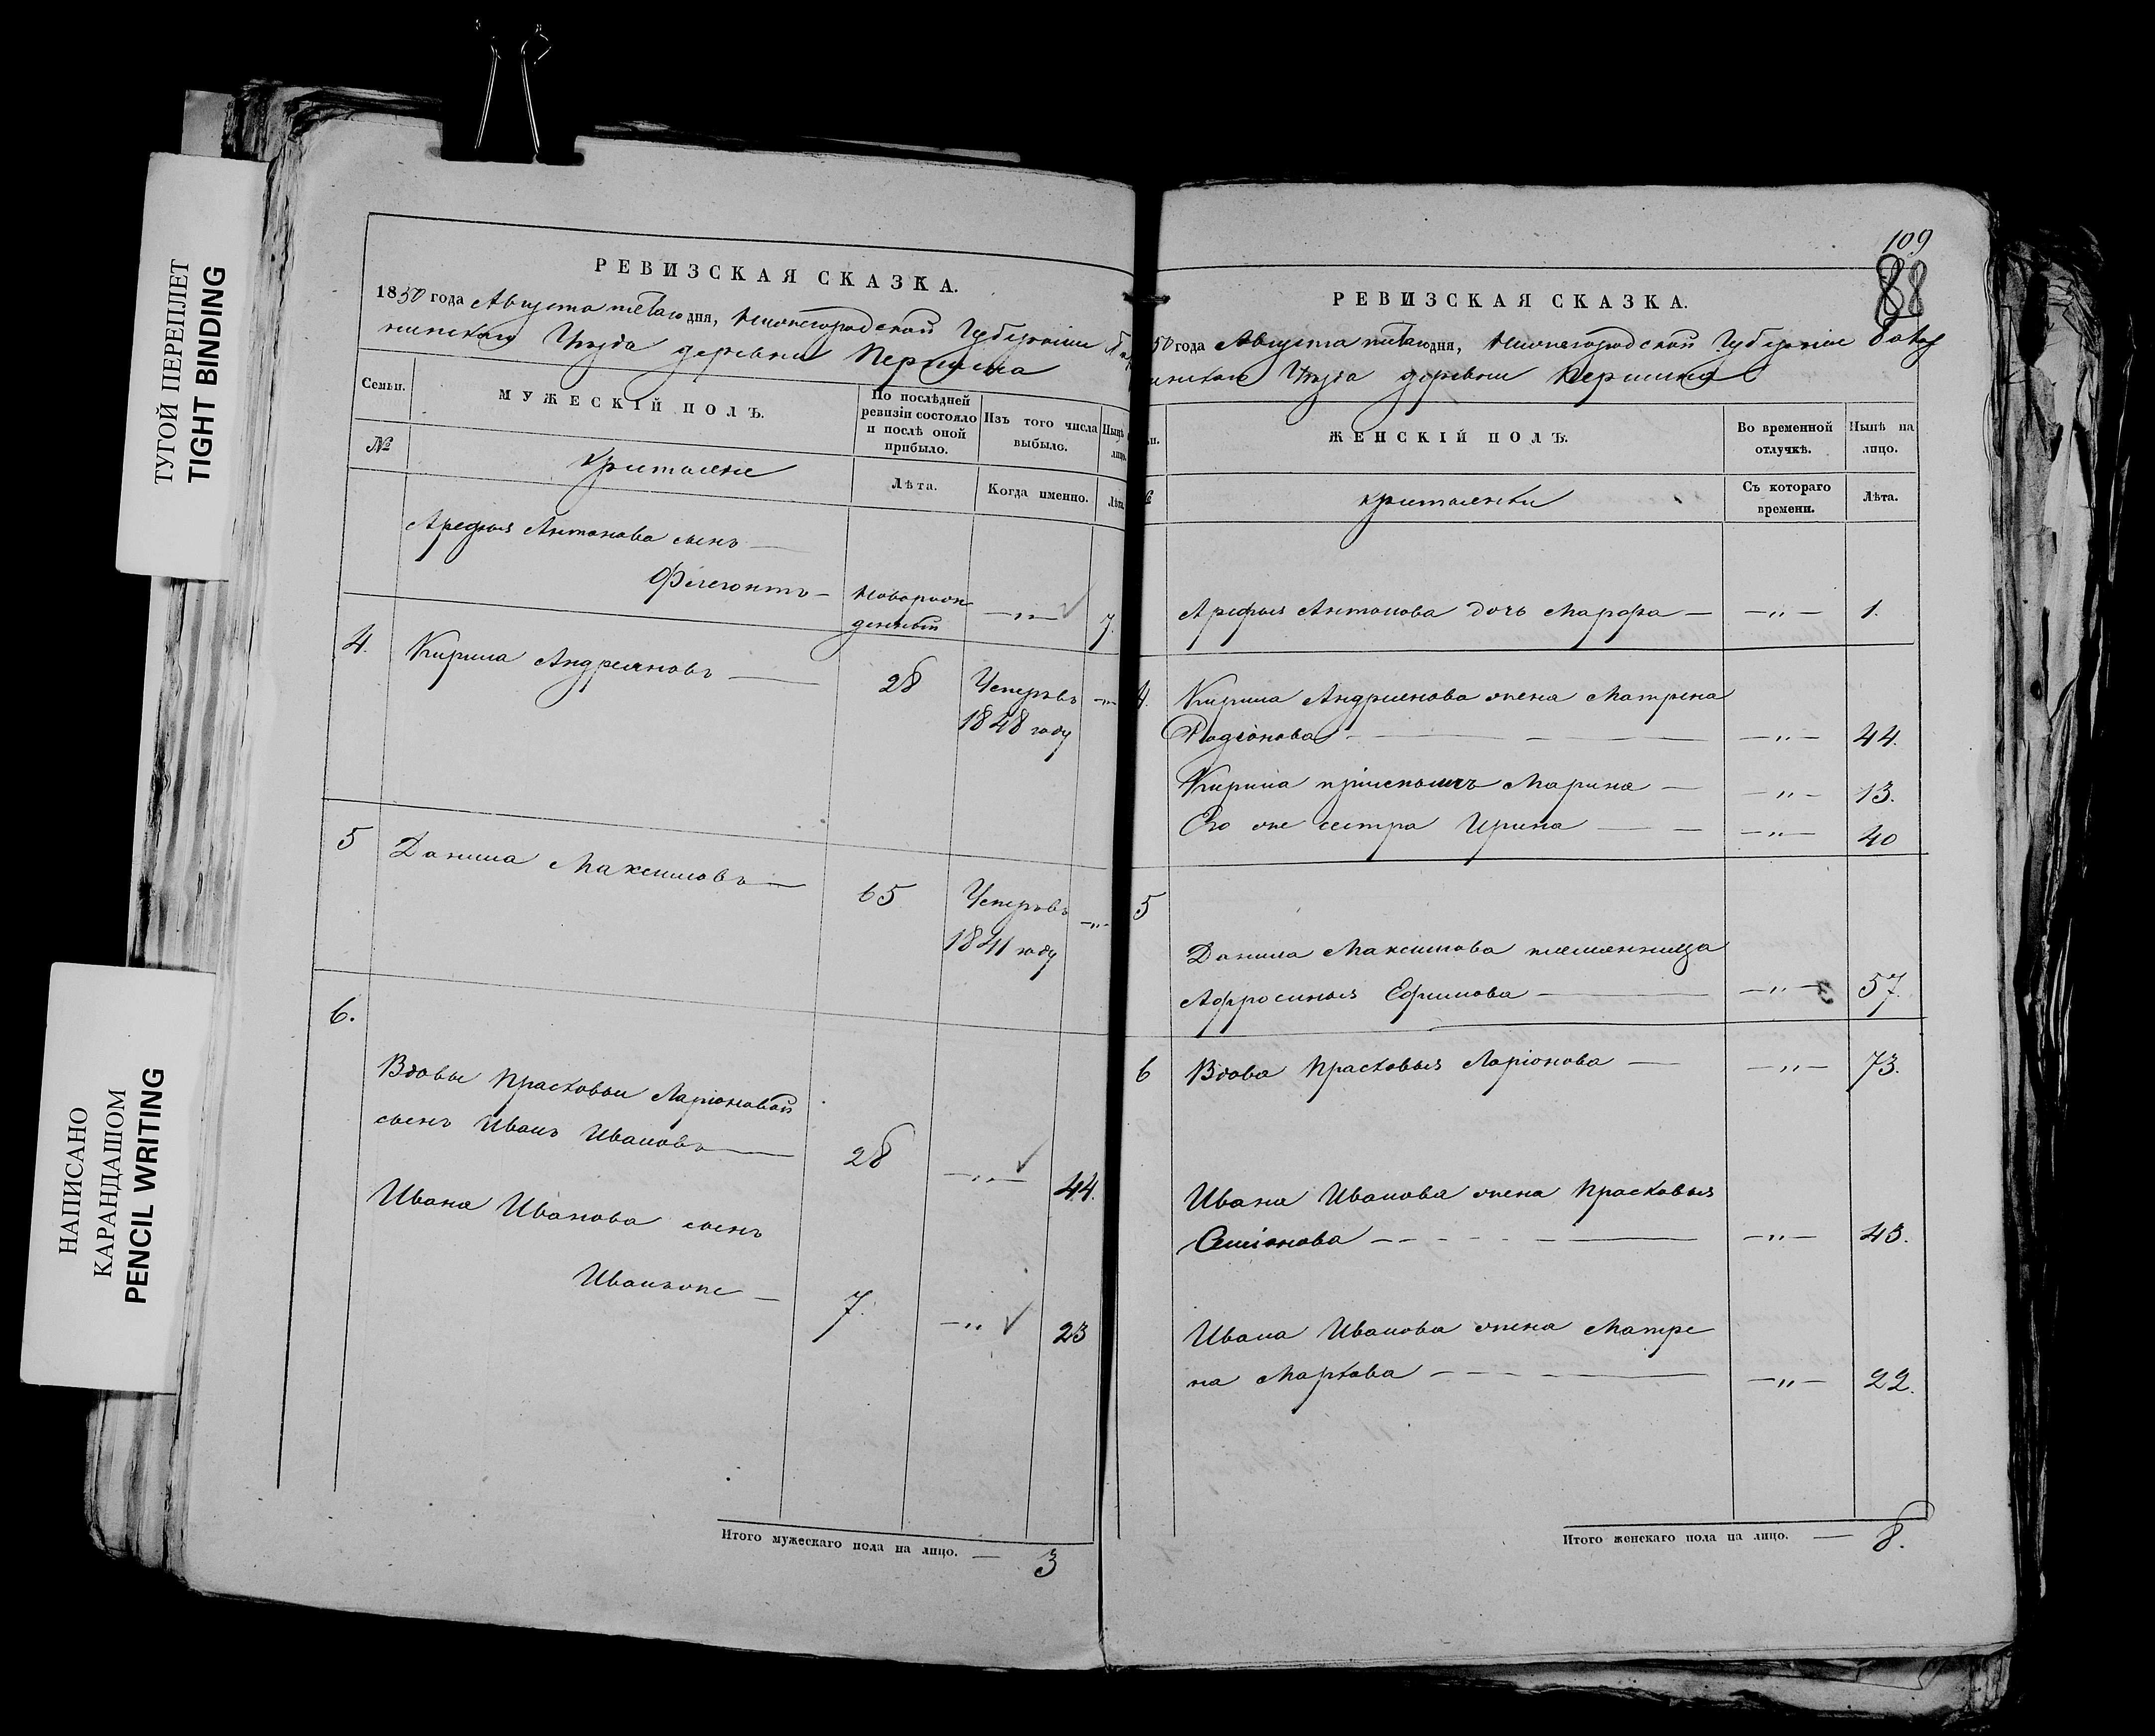 ТУГОЙ ПЕРЕПЛЕТ
TIGHT BINDING
НАПИСАНО
КАРАНДАШОМ
PENCIL WRITING
РЕВИЗСКАЯ СКАЗКА.
1850 года Августа дня, Нижегородской Губернiи
нинскаго Уѣзда деревни
Семьи.
МУЖЕСКІЙ ПОЛЪ.
По послѣдней
ревизіи состояло
и послѣ оной
прибыло.
Изъ того числа
выбыло.
Нынѣ
лицо.
№
Крестьяне
Лѣта.
Когда именно.
Лѣта
Арефья Антонова сынъ
Филегонтъ
Новорож
денный
7.
4.
Кирила Андреяновъ
28
Умеръ въ
1848 году
5
Данила Максимовъ
65
Умеръ въ
1841 году
6.
Вдовы Прасковьи Ларіоновой
сынъ Иванъ Ивановъ
28
44.
Ивана Иванова сынъ
Иванъ же
7.
23
Итого мужескаго пола на лицо. 3
109
88
РЕВИЗСКАЯ СКАЗКА.
50 года Августа дня, Нижегородской Губерніи
нинскаго Уѣзда деревни
ЖЕНСКІЙ ПОЛЪ.
Во временной
отлучкѣ.
Нынѣ на
лицо.
Крестьянки
Съ котораго
времени.
Лѣта.
Арефья Антонова дочь Марфа — „ — 1.
4.
Кирила Андреянова жена Матрена
Родіонова — „ — 44.
Кирила Марина — „ — 13.
Его же сестра Ирина — „ — 40
5
Данила Максимова племянница
Афросинья Ефимова — „ — 57.
6
Вдова Прасковья Ларіонова — „ — 73.
Ивана Иванова жена Прасковья
Семіонова — „ — 43.
Ивана Иванова жена Матре
на Маркова — „ — 22.
Итого женскаго пола на лицо. — 8.